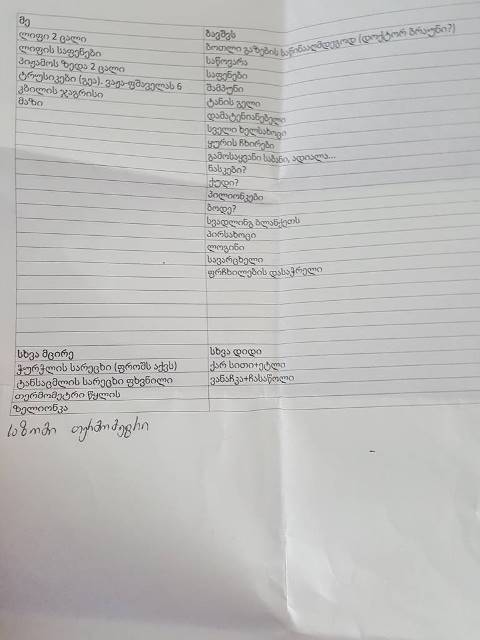 მე
ლიფი 2 ცალი
ლიფის საფენები
პიჟამოს ზედა 2 ცალი
ტრუსიკები (გეა). ვაჟა-ფშაველას 6
კბილის ჯაგრისი
მაზი
ბავშვს
ბოთლი გაზების საწინააღმდეგოდ (დოქტორ ბრაუნი?)
საწოვარა
საფენები
შამპუნი
ტანის გელი
დამატენიანებელი
სველი ხელსახოცი
ყურის ჩხირები
გამოსაყვანი საბანი, ადიალა...
წასკები?
ქუდი?
პილიონკები
ბოდე?
სვადლინგ ბლანქეთს
პირსახოცი
ლოგინი
სავარცხელი
ფრჩხილების დასაჭრელი
სხვა მცირე
ჭურჭლის სარეცხი (ფროშს აქვს)
ტანსაცმლის სარეცხი ფხვნილი
თერმომეტრი წყლის
ზელიონკა
სხვა დიდი
ქარ სითი+ეტლი
ვანაჩკა+ჩასაწოლი
საზომი თერმომეტრი